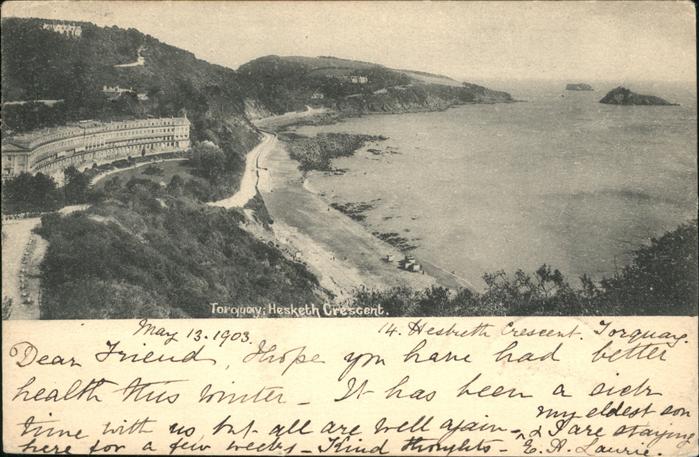 Torquay; Hesketh Crescent.
May 13. 1903. 14. Hesketh Crescent. Torquay.
Dear Friend, I hope you have had better
health this winter - It has been a sick
time with us but all are well again - my eldest son
& I are staying
here for a few weeks - Kind thoughts - E. A. Laurie.